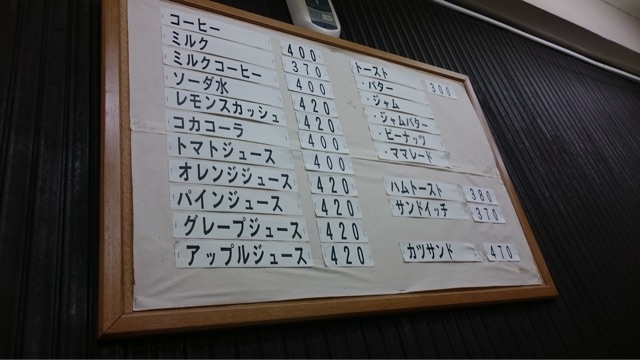 コーヒー 400
ミルク 370
ミルクコーヒー 400
ソーダ水 420
レモンスカッシュ 420
コカコーラ 400
トマトジュース 400
オレンジジュース 420
パインジュース 420
グレープジュース 420
アップルジュース 420
トースト 300
・バター
・ジャム
・ジャムバター
・ピーナッツ
・ママレード
ハムトースト 380
サンドイッチ 370
カツサンド 470